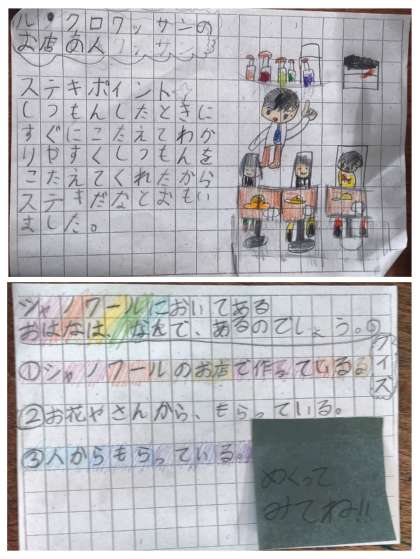 ル・クロワッサンの
お店の人
ステキポイント☆
しつもんしたときに
すぐにこたえてわか
りやすくしつもんを
こたえてくれたから
ステキだなとおもい
ました。
シャノワールにおいてある
おはなは、なんで、あるのでしょう。
クイズ
①シャノワールのお店で作っている。
②お花やさんから、もらっている。
③人からもらっている。
めくって
みてね!!